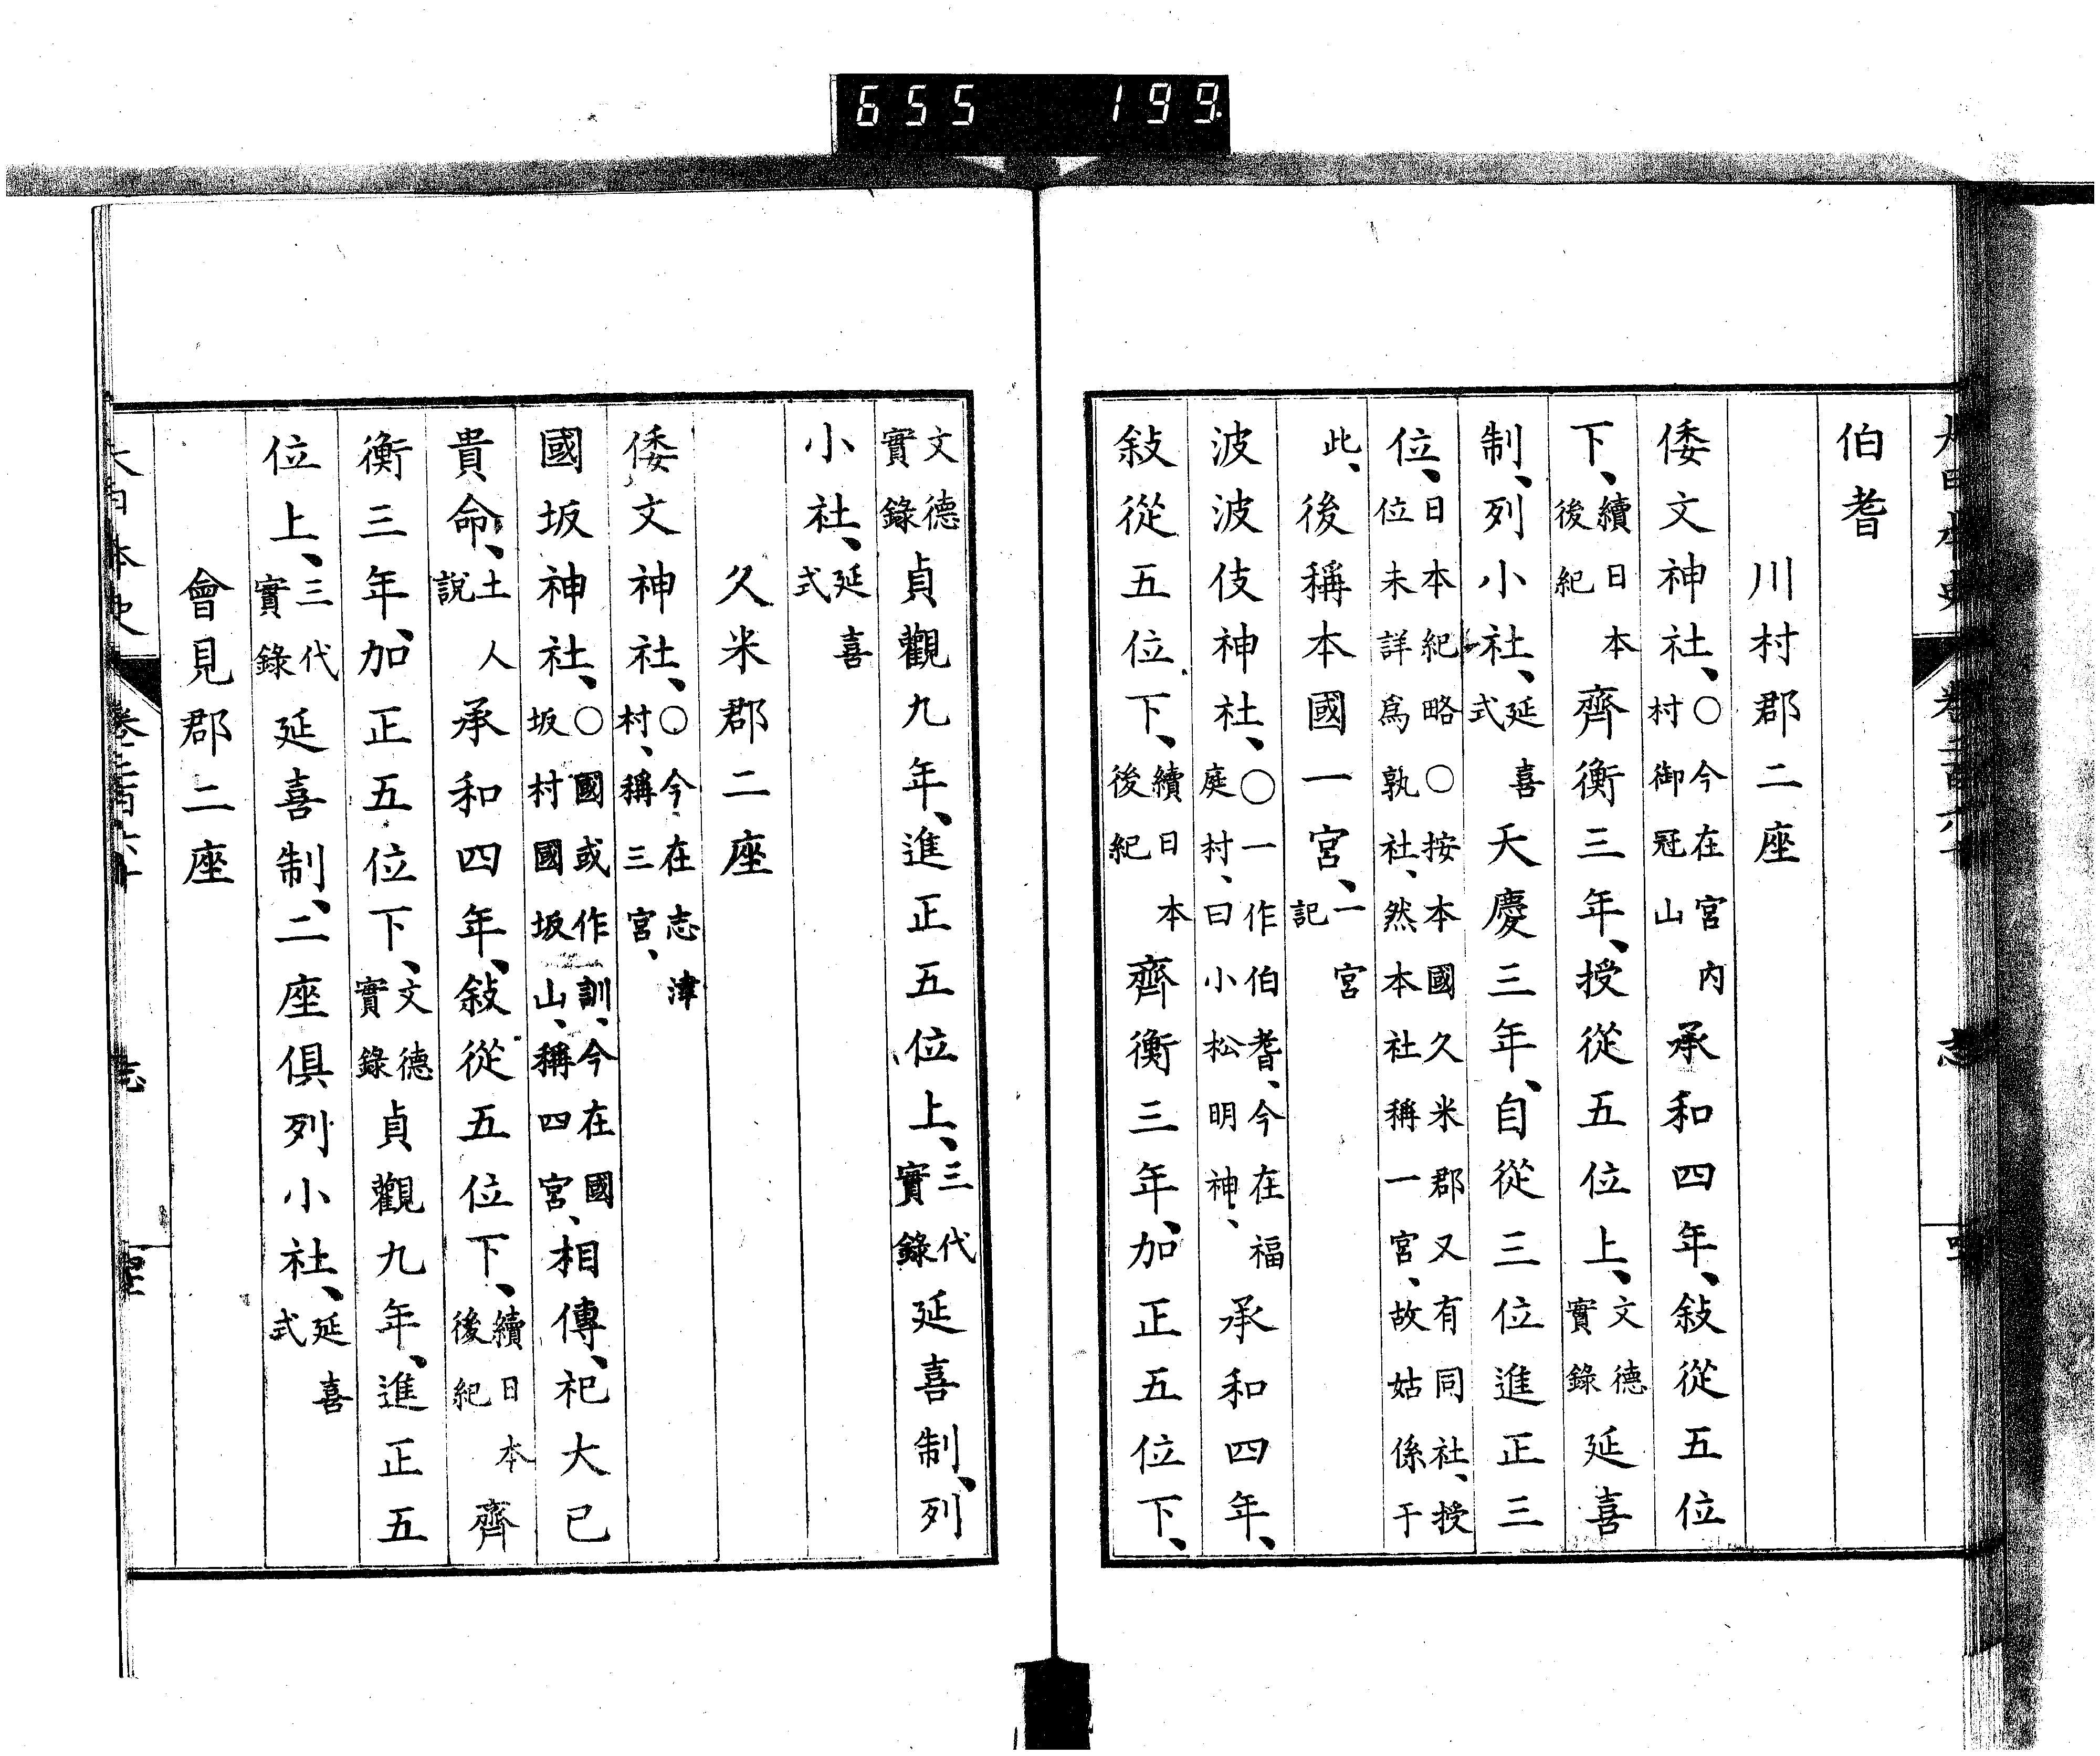 655 199
伯耆
川村郡二座
倭文神社、○今在宮内村御冠山承和四年、敍從五位
下、續日本後紀齊衡三年、授從五位上、文德實錄延喜
制、列小社、延喜式天慶三年、自從三位進正三
位、日本紀略○按本國久米郡又有同社、授位未詳爲孰社、然本社稱一宮、故姑係于
此、後稱本國一宮、一宮記
波波伎神社、○一作伯耆、今在福庭村、曰小松明神、承和四年、
敍從五位下、續日本後紀齊衡三年、加正五位下、
文德實錄貞觀九年、進正五位上、三代實錄延喜制、列
小社、延喜式
久米郡二座
倭文神社、○今在志津村、稱三宮、
國坂神社、○國或作訓、今在國坂村國坂山、稱四宮、相傳、祀大已
貴命、土人說承和四年、敍從五位下、續日本後紀齊
衡三年、加正五位下、文德實錄貞觀九年、進正五
位上、三代實錄延喜制、二座俱列小社、延喜式
會見郡二座